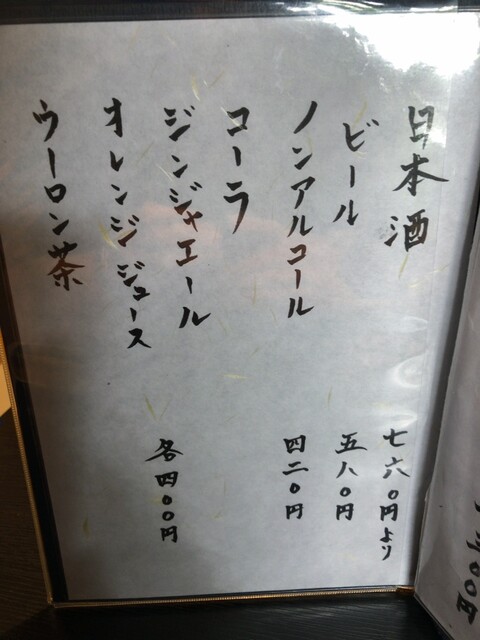 日本酒 七六〇円より
ビール 五八〇円
ノンアルコール 四二〇円
コーラ
ジンジャエール 各四〇〇円
オレンジジュース
ウーロン茶
〇〇円